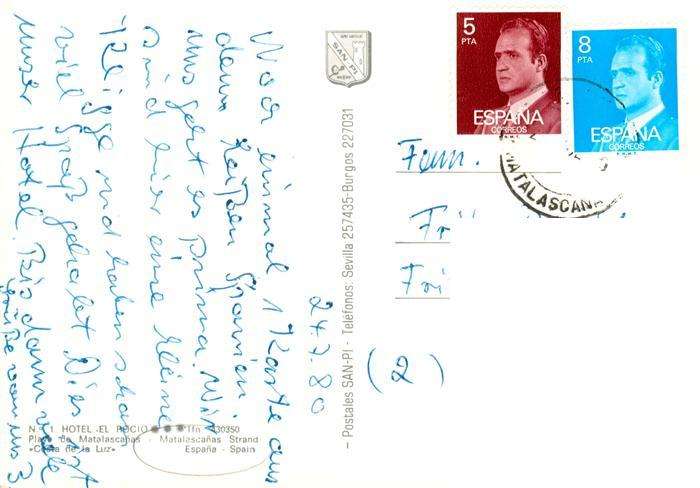 24.7.80
Noch einmal 1 Karte aus
dem heißen Spanien.
uns geht es prima. Wir
sind hier eine kleine
und haben schon
viel Spaß gehabt. Dies ist
unser Hotel. Bis dann viele
Grüße von uns 3
SAN-PI
– Postales SAN-PI - Teléfonos: Sevilla 257435-Burgos 227031
5
PTA
ESPAÑA
CORREOS
8
PTA
ESPAÑA
CORREOS
MATALASCAÑ
Fam.
(2)
N.º 1 HOTEL EL ROCIO Tfn 430350
Playa de Matalascañas - Matalascañas Strand
«Costa de la Luz» España - Spain